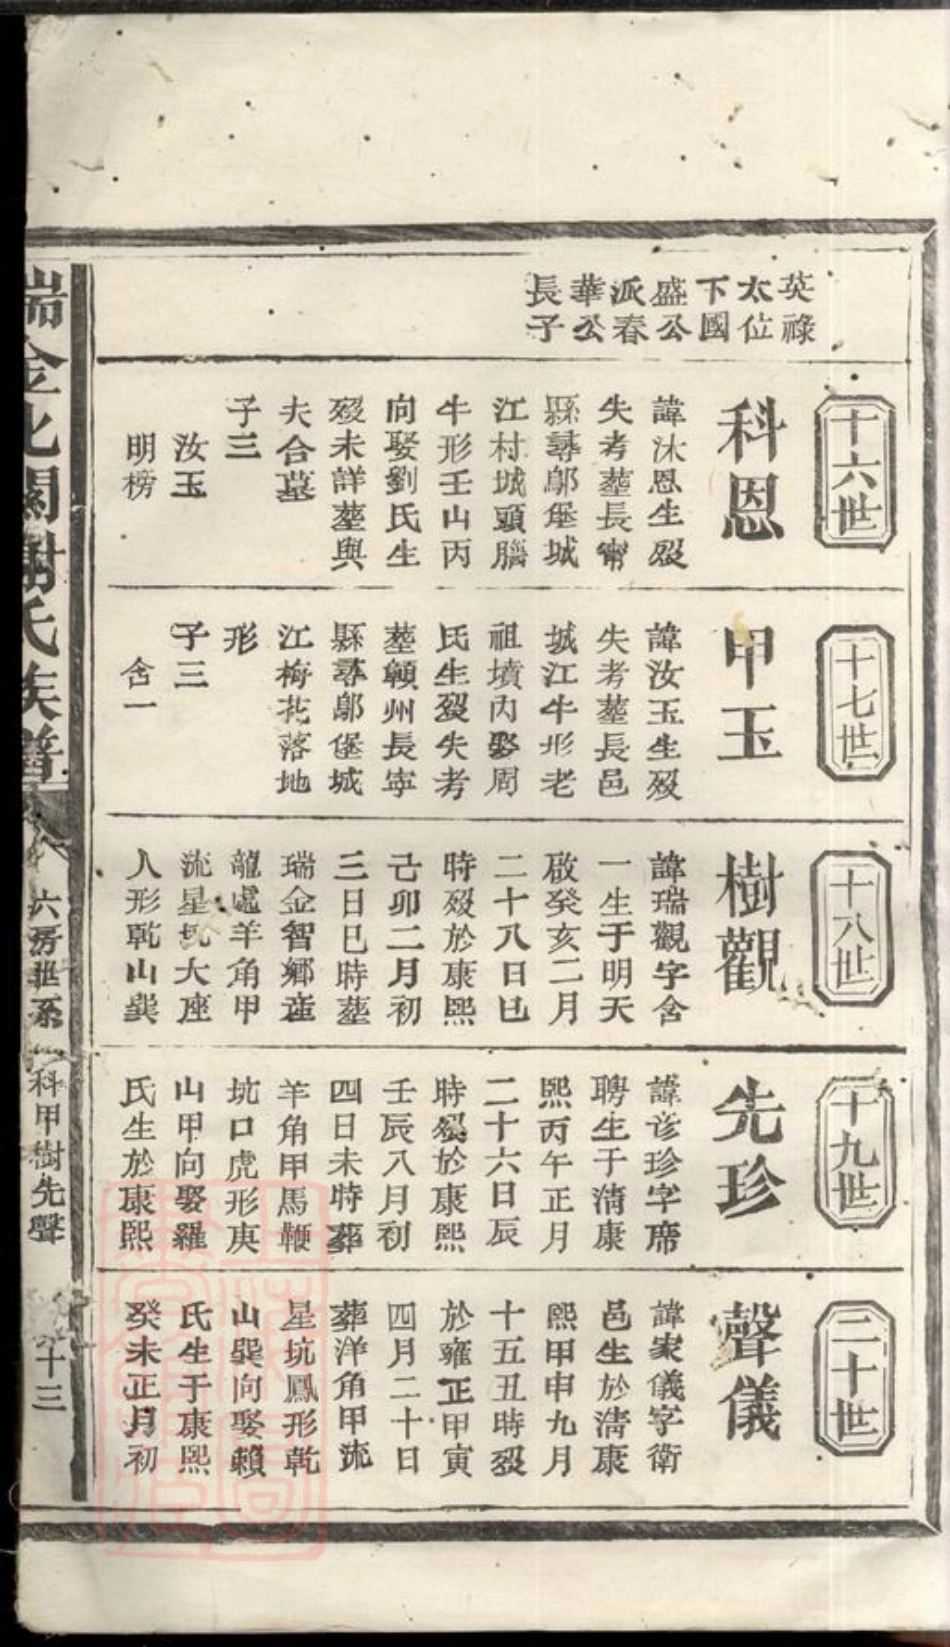 英祿
太位
下國
盛公
派春
華公
長子
十六世
科恩
諱沐恩生歿
失考塟長甯
縣尋鄔堡城
江村城頭腦
牛形壬山丙
向娶劉氏生
歿未詳塟與
夫合墓
子三
汝玉
明榜
十七世
甲玉
諱汝玉生歿
失考塟長邑
城江牛形老
祖墳內娶周
氏生歿失考
塟贛州長寧
縣尋鄔堡城
江梅花落地
形
子三
含一
十八世
樹觀
諱瑞觀字含
一生于明天
啟癸亥二月
二十八日巳
時歿於康熙
己卯二月初
三日巳時塟
瑞金智鄉產
龍處羊角甲
流星坑大座
人形乾山巽
十九世
先珍
諱彥珍字席
聘生于清康
熙丙午正月
二十六日辰
時歿於康熙
壬辰八月初
四日未時葬
羊角甲馬鞭
坑口虎形庚
山甲向娶羅
氏生於康熙
二十世
聲儀
諱家儀字衛
邑生於清康
熙甲申九月
十五丑時歿
於雍正甲寅
四月二十日
葬洋角甲流
星坑鳳形乾
山巽向娶賴
氏生于康熙
癸未正月初
瑞金北關謝氏族譜
六房世系
科甲樹先聲
十三